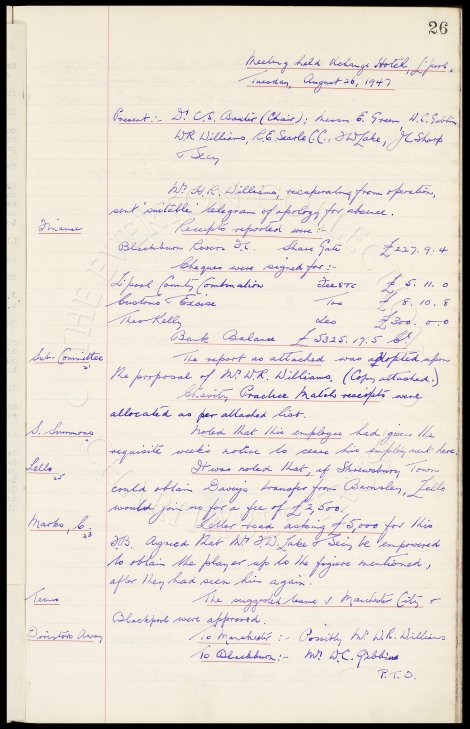 26
Meeting held Xchange Hotel, L'pool,
Tuesday, August 26, 1947
Present:- Dr. C.S. Baxter (Chair); Messrs E. Green W.C. Gibbins
W.R. Williams, R.E. Searle C.C., F.W. Lake, J.C. Sharp
& Secy
Mr. H.R. Williams, recuperating from operation,
sent 'suitable' telegram of apology for absence.
Finance
Receipts reported were:-
Blackburn Rovers F.C. Share Gate £227. 9. 4
Cheques were signed for:-
L'pool County Combination Fees etc £ 5. 11. 0
Customs & Excise Tax £ 8. 10. 8
Theo Kelly £300. 0. 0
Bank Balance £5325. 17. 5 Cr
Sub. Committee
The report as attached was adopted upon
the proposal of Mr. W.R. Williams. (Copy attached.)
Charity Practice Match receipts were
allocated as per attached list.
S. Simmons
Noted that this employee had given the
requisite week's notice to cease his employment here.
Lello
25
It was noted that, if Shrewsbury Town
could obtain Davey's transfer from Barnsley, Lello
would join us for a fee of £2,500.
Marks, C.
23
Letter read asking £5,000 for this
F.B. Agreed that Mr. F.W. Lake & Secy be empowered
to obtain the player up to the figure mentioned,
after they had seen him again.
Teams
The suggested teams v Manchester City &
Blackpool were approved.
Directors Away
To Manchester:- Possibly Mr. W.R. Williams
To Blackburn:- Mr. W.C. Gibbins
P.T.O.